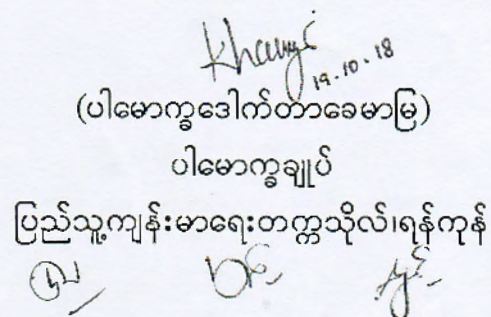 19.10.18
(ပါမောက္ခဒေါက်တာခေမာမြ)
ပါမောက္ခချုပ်
ပြည်သူ့ကျန်းမာရေးတက္ကသိုလ်၊ရန်ကုန်